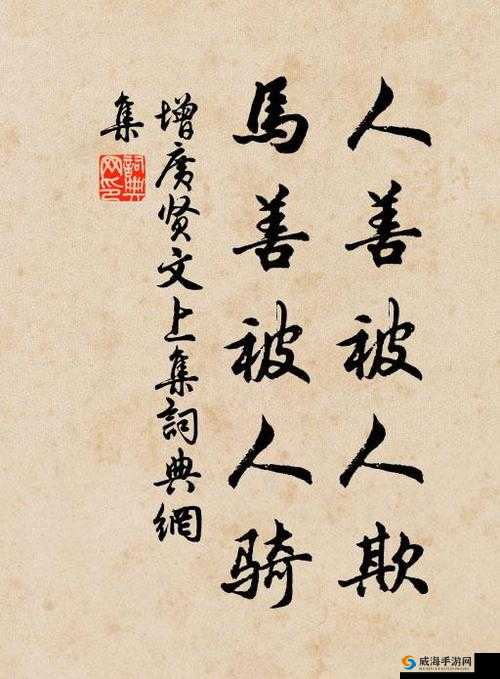 人善被人欺
馬善被人骑
增廣贤文上集詞典網
集
詞典网印
威海手游网